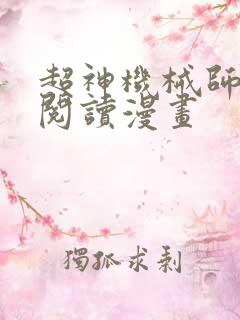 超神機械師
閱讀漫畫
獨孤求剩